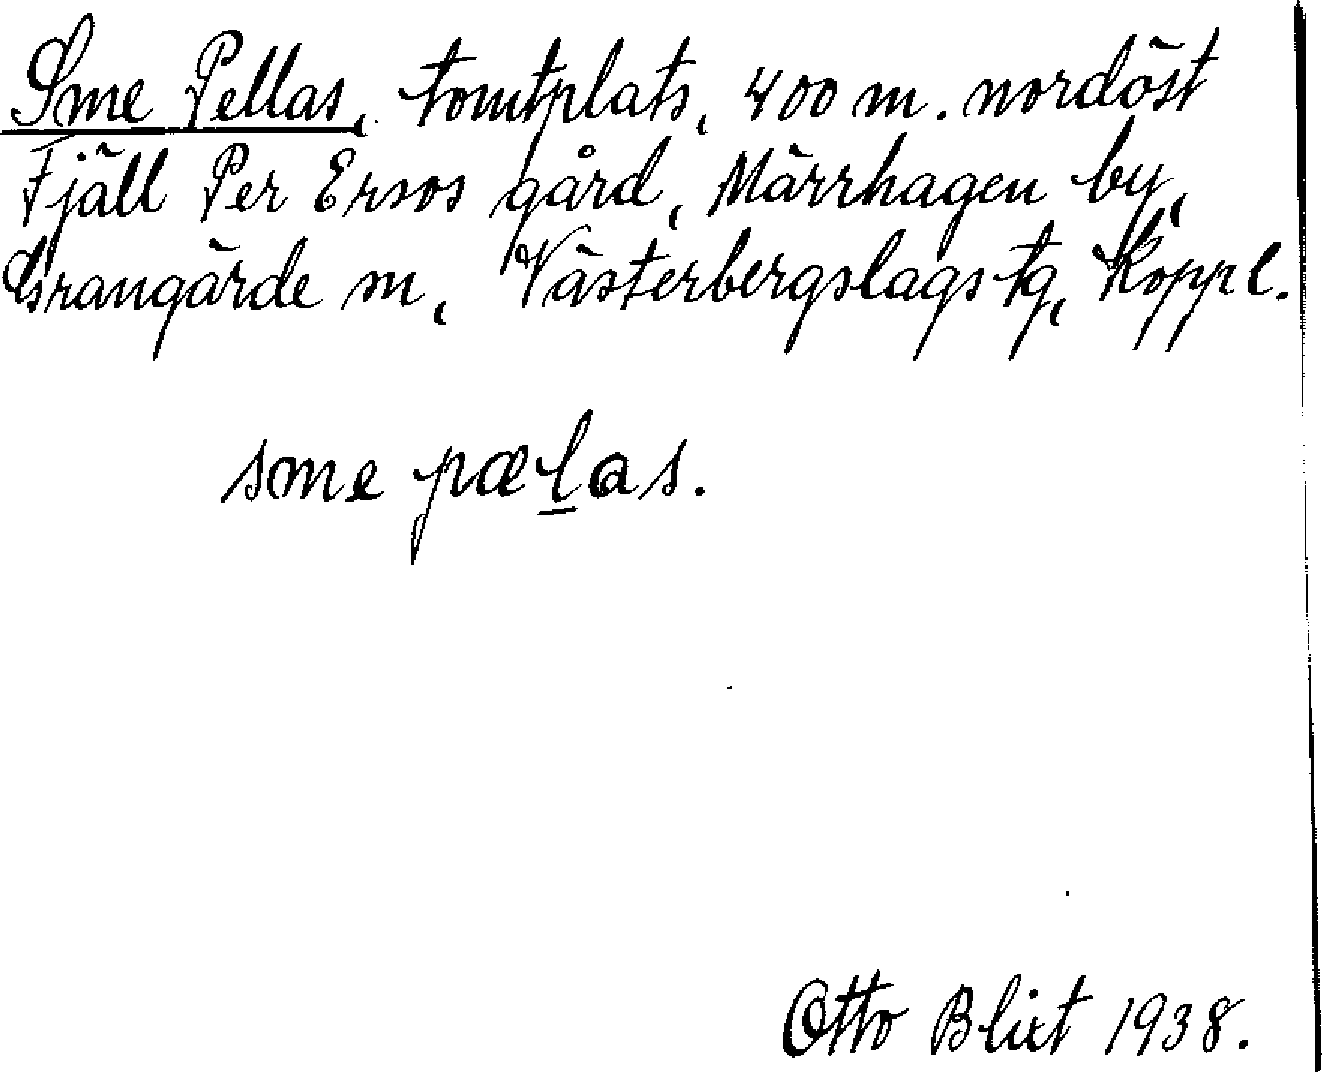 Sme Pellas, tomtplats, 400 m. nordöst
Fjäll Per Ersos gård, Märrhagen by,
Grangärde sn, Västerbergslags tg, Koppl.
sme pæl̲as.
Otto Blixt 1938.